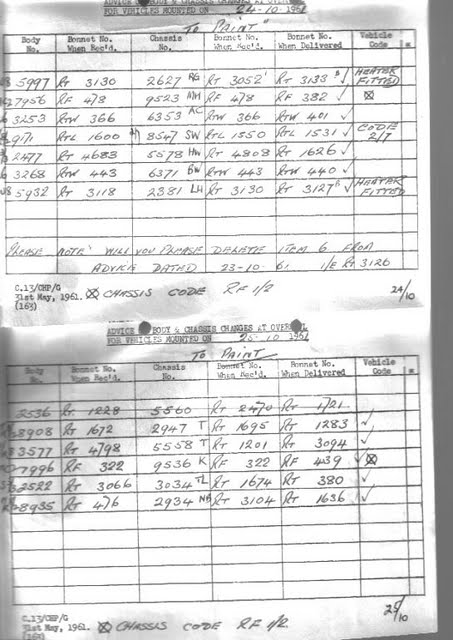 ADVICE BODY & CHASSIS CHANGES AT
FOR VEHICLES MOUNTED ON 24-10-1961
"TO PAINT"
Body No. Bonnet No. When Rec'd. Chassis No. Bonnet No. When Rec'd. Bonnet No. When Delivered Vehicle Code
5997 RT 3130 2627 RG RT 3052 RT 3133 ✓ HEATER FITTED
7956 RF 478 9523 RF 478 RF 382 ✓ ⊠
3253 RTW 366 6353 RC RTW 366 RTW 401 ✓
9171 RTL 1600 8547 SW RTL 1550 RTL 1531 ✓ CODE 2/7
2477 RT 4683 5578 HW RT 4808 RT 1626 ✓
3268 RTW 443 6371 BW RTW 443 RTW 440 ✓
5932 RT 3118 2381 LH RT 3130 RT 3127 ✓ HEATER FITTED
PLEASE NOTE' WILL YOU PLEASE DELETE ITEM 6 FROM
ADVICE DATED 23-10-61 I/E RT 3126
C.13/CHP/G
31st May, 1961. ⊠ CHASSIS CODE RF 1/2 24/10
(163)
ADVICE BODY & CHASSIS CHANGES AT
FOR VEHICLES MOUNTED ON 25-10-1961
"TO PAINT"
Body No. Bonnet No. When Rec'd. Chassis No. Bonnet No. When Rec'd. Bonnet No. When Delivered Vehicle Code
2536 RT 1228 5560 RT 2470 RT 1721 ✓
8908 RT 1672 2947 T RT 1695 RT 1283 ✓
3577 RT 4798 5558 T RT 1201 RT 3094 ✓
7996 RF 322 9536 K RF 322 RF 439 ✓ ⊠
2522 RT 3066 3034 TL RT 1674 RT 380 ✓
8935 RT 476 2934 RT 3104 RT 1636 ✓
C.13/CHP/G
31st May, 1961. ⊠ CHASSIS CODE RF 1/2
(163)